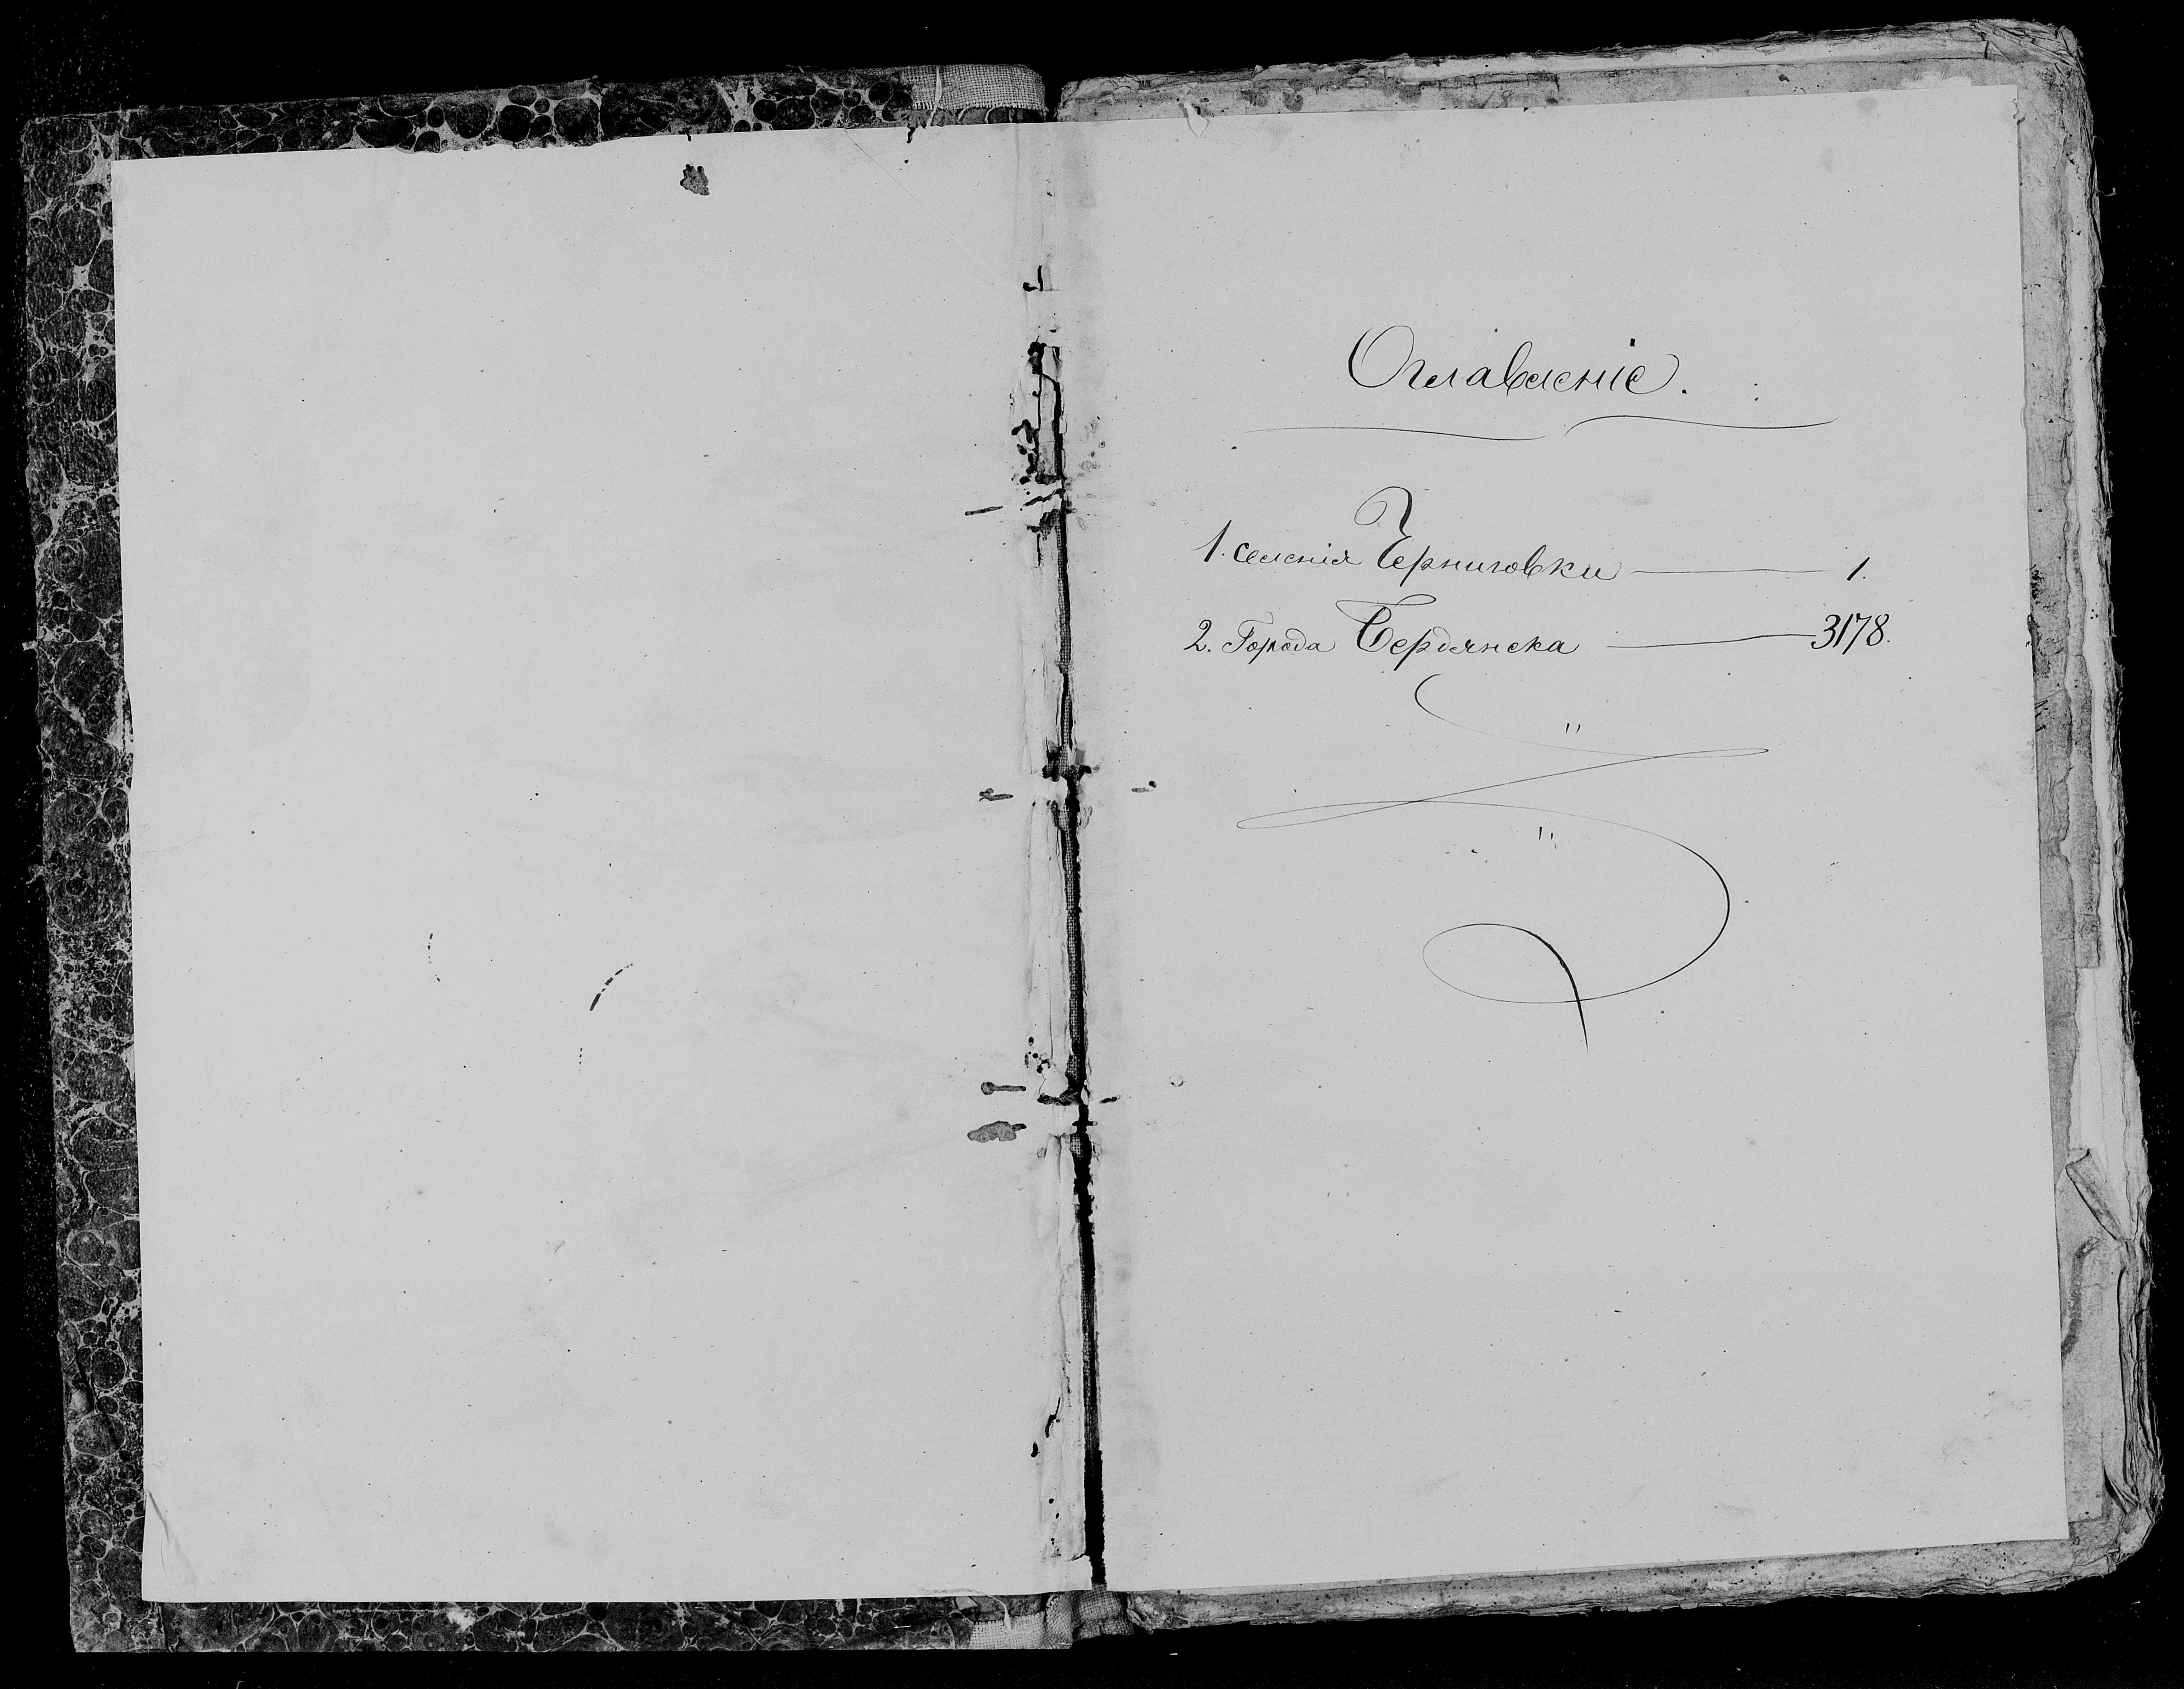 Оглавленіе.
1. селенія Черниговки — 1.
2. Города Бердянска — 3178.